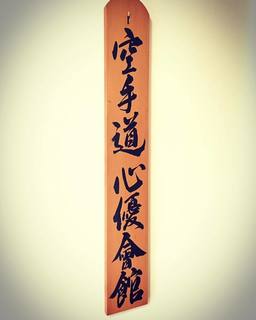 空手道心優會館